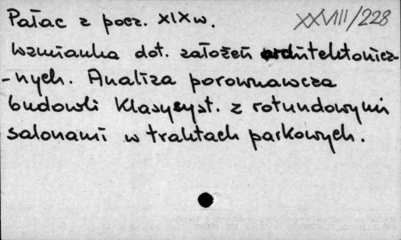 Pałac z pocz. XIX w.
XXVIII/228
Wzmianka dot. założeń architektonicz-
-nych. Analiza porównawcza
budowli klasycyst. z rotundowymi
salonami w traktach parkowych.